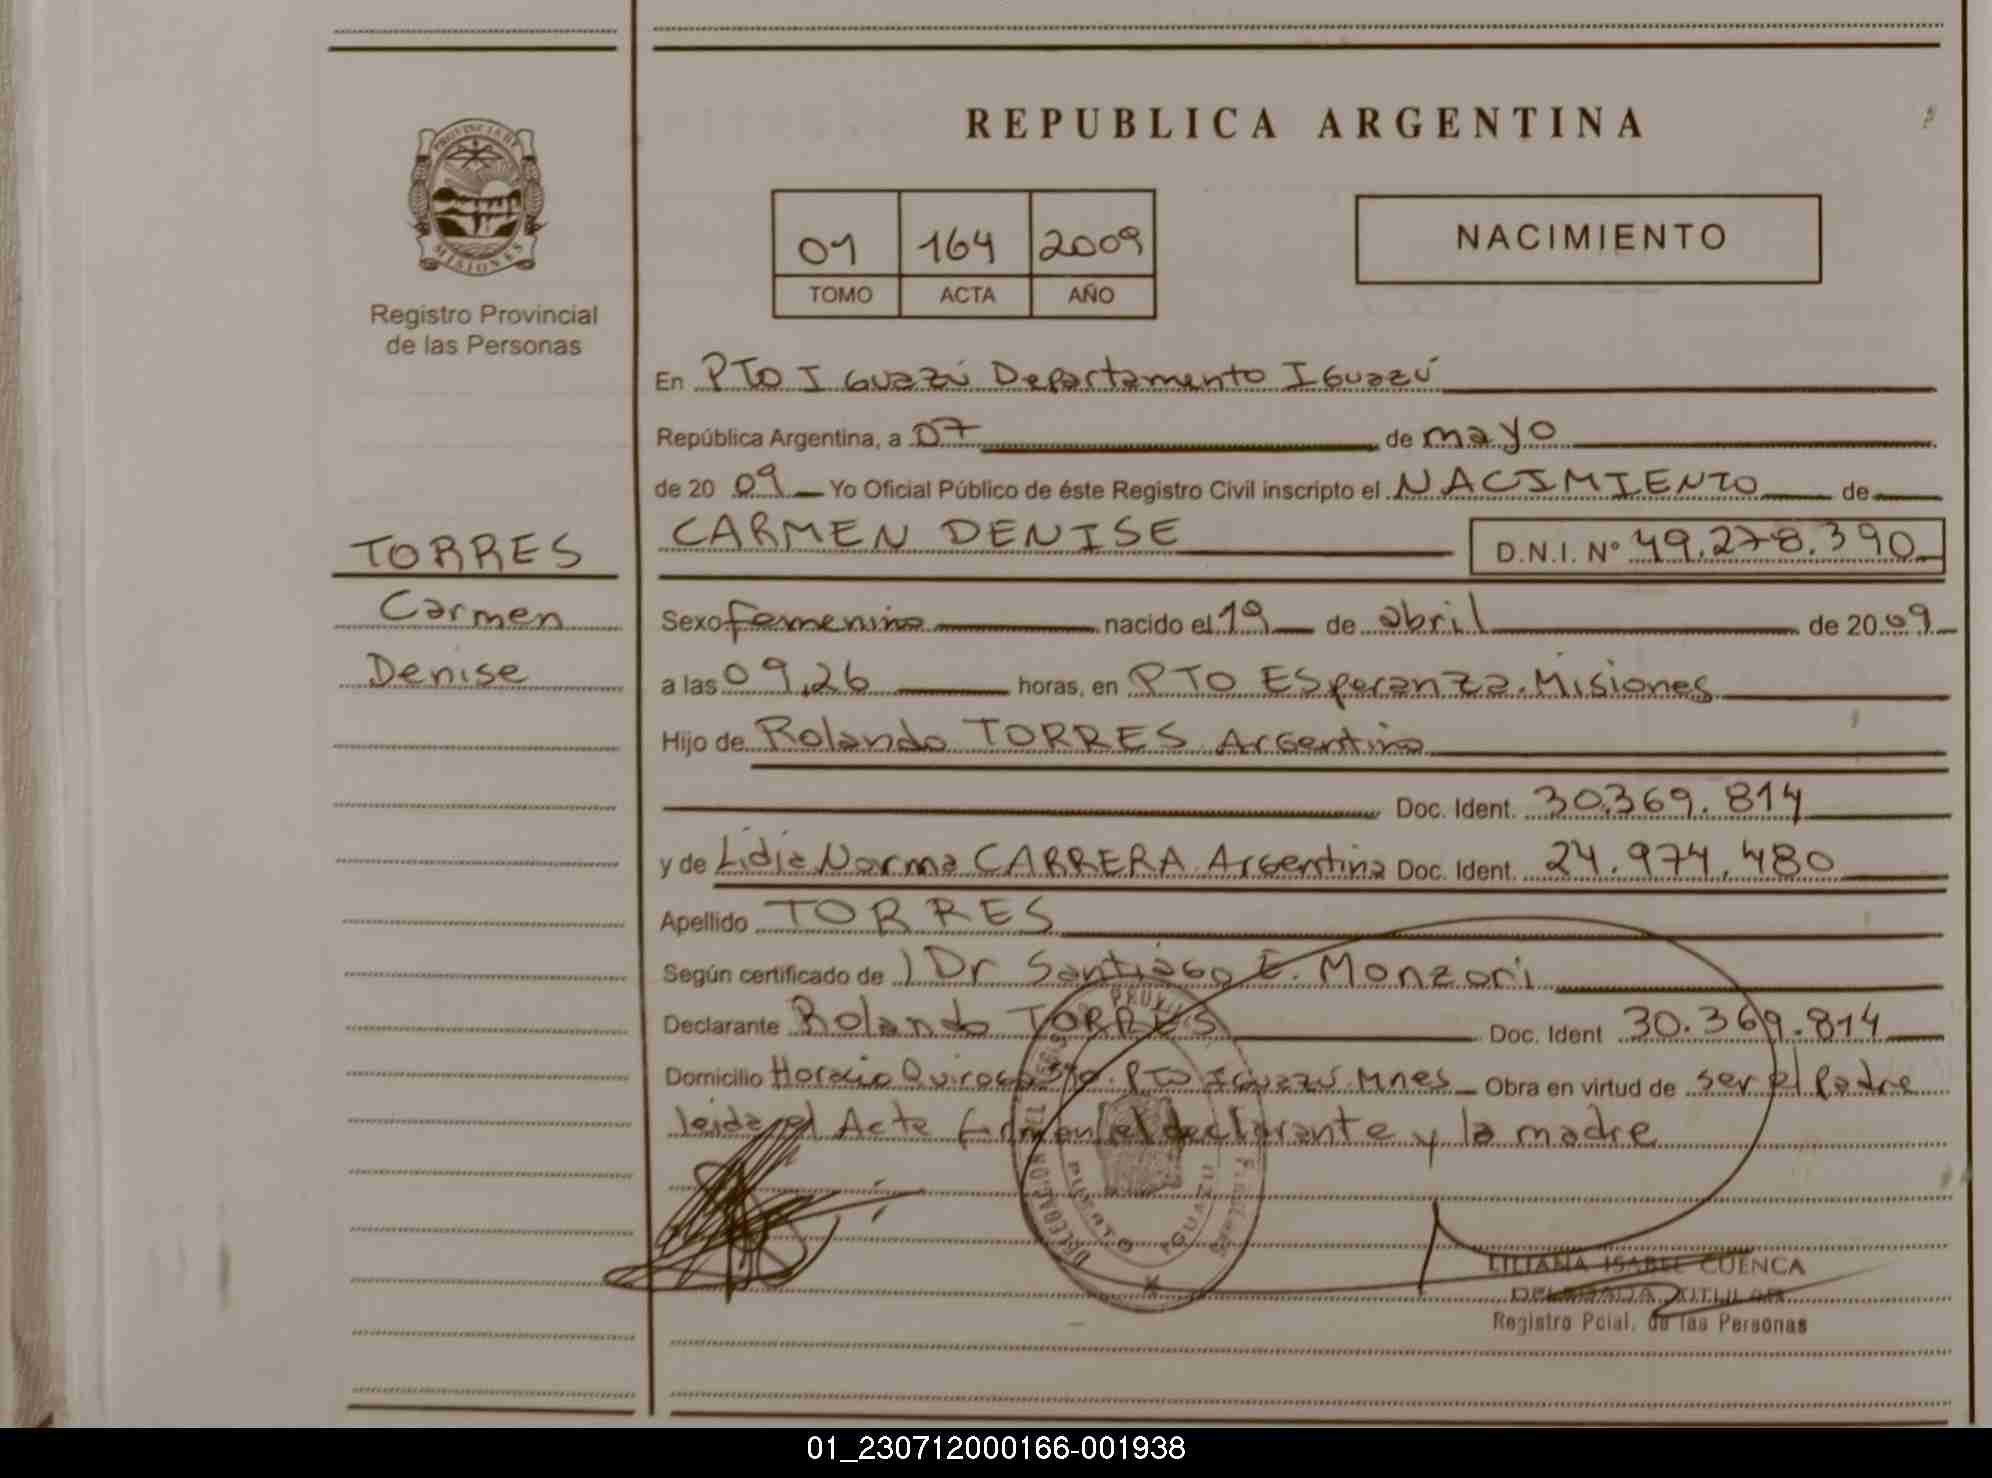 REPUBLICA ARGENTINA
PROVINCIA DE
MISIONES
Registro Provincial
de las Personas
01 164 2009
TOMO ACTA AÑO
NACIMIENTO
En PTO IGUAZÚ Departamento IGUAZÚ
República Argentina, a 07 de mayo
de 20 09 Yo Oficial Público de éste Registro Civil inscripto el NACIMIENTO de
TORRES
Carmen
Denise
CARMEN DENISE D.N.I. N° 49.278.390
Sexo femenino nacido el 19 de abril de 20 09
a las 09,26 horas, en PTO ESperanza. Misiones
Hijo de Rolando TORRES Argentino
Doc. Ident. 30.369.814
y de Lidia Norma CARRERA Argentina Doc. Ident. 24.974.480
Apellido TORRES
Según certificado de Dr Santiago E. Monzori
Declarante Rolando TORRES Doc. Ident 30.369.814
Domicilio Horacio Quiroga PTO IGUAZÚ. Mnes Obra en virtud de ser el Padre
leida el Acta firman el declarante y la madre
DELEGACION DEL REGISTRO
PUERTO IGUAZU
LILIANA ISABEL CUENCA
DELEGADA TITULAR
Registro Pcial. de las Personas
01_230712000166-001938